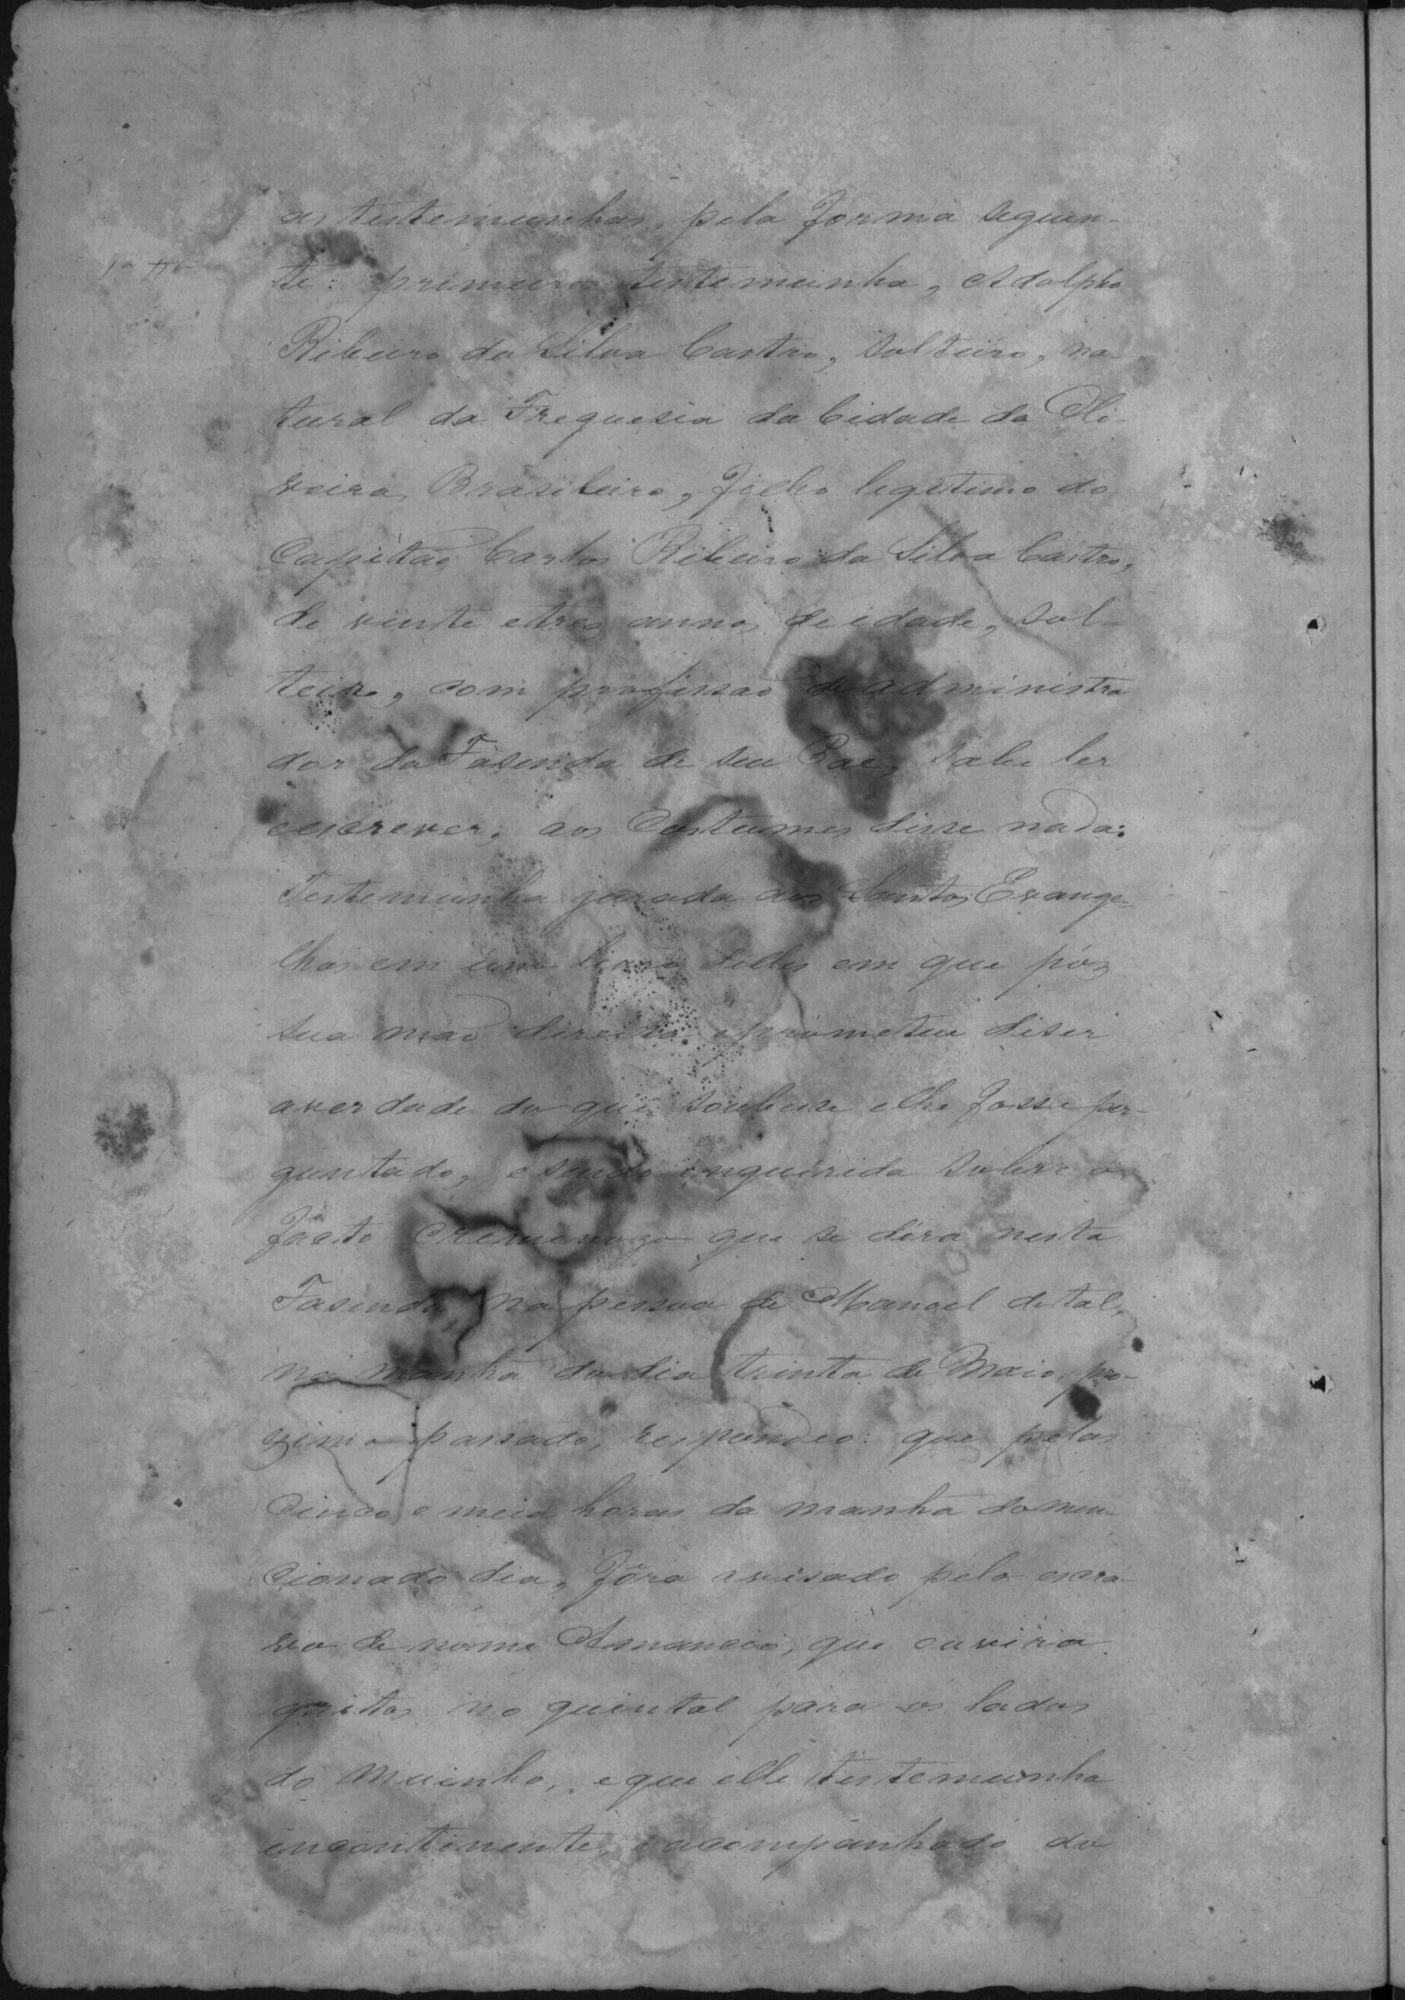 as testemunhas, pela forma seguin-
1ª Ttª
te: primeira testemunha, Adolpho
Ribeiro da Silva Castro, solteiro, na-
tural da Freguesia da Cidade da Oli-
veira, Brasileiro, filho legitimo do
Capitão Carlos Ribeiro da Silva Castro,
de vinte e tres annos de idade, sol-
teiro, com profissão de administra
dor da Fasenda de seu Pae, sabe ler
e escrever; aos Costumes disse nada:
Testemunha jurada aos Santos Evange-
lhos em um livro delles em que pôz
sua mão direita e prometeu diser
a verdade do que soubesse e lhe fosse per-
guntado, e sendo inquirida sobre o
facto criminozo que se déra nesta
Fasenda na pessoa de Manoel de tal,
na manhã do dia trinta de Maio, pro-
ximo passado, respondeo: que pelas
Cinco e meia horas da manhã do men-
cionado dia, fôra avisado pelo escra-
vo de nome Amancio, que ouvira
gritos no quintal para os lados
do muinho, e que elle testemunha
incontinente, e acompanhado do